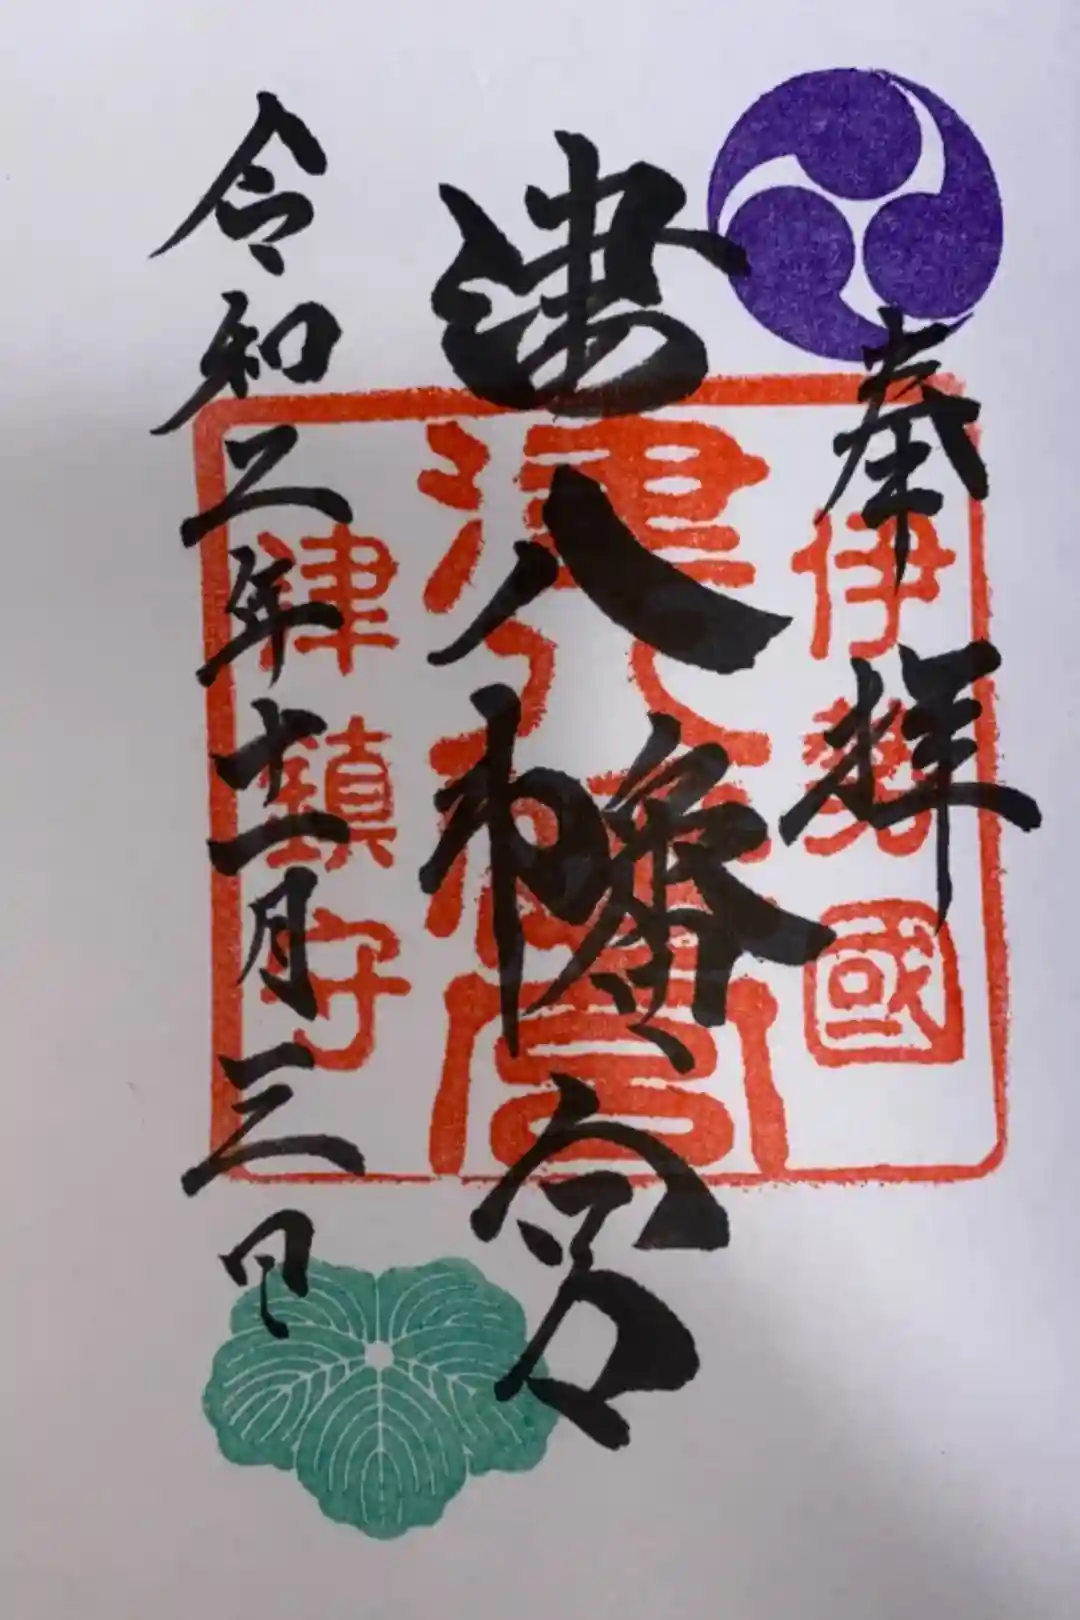 奉拝
伊勢國
津八幡宮
津八幡宮
津鎮守
令和二年十一月三日